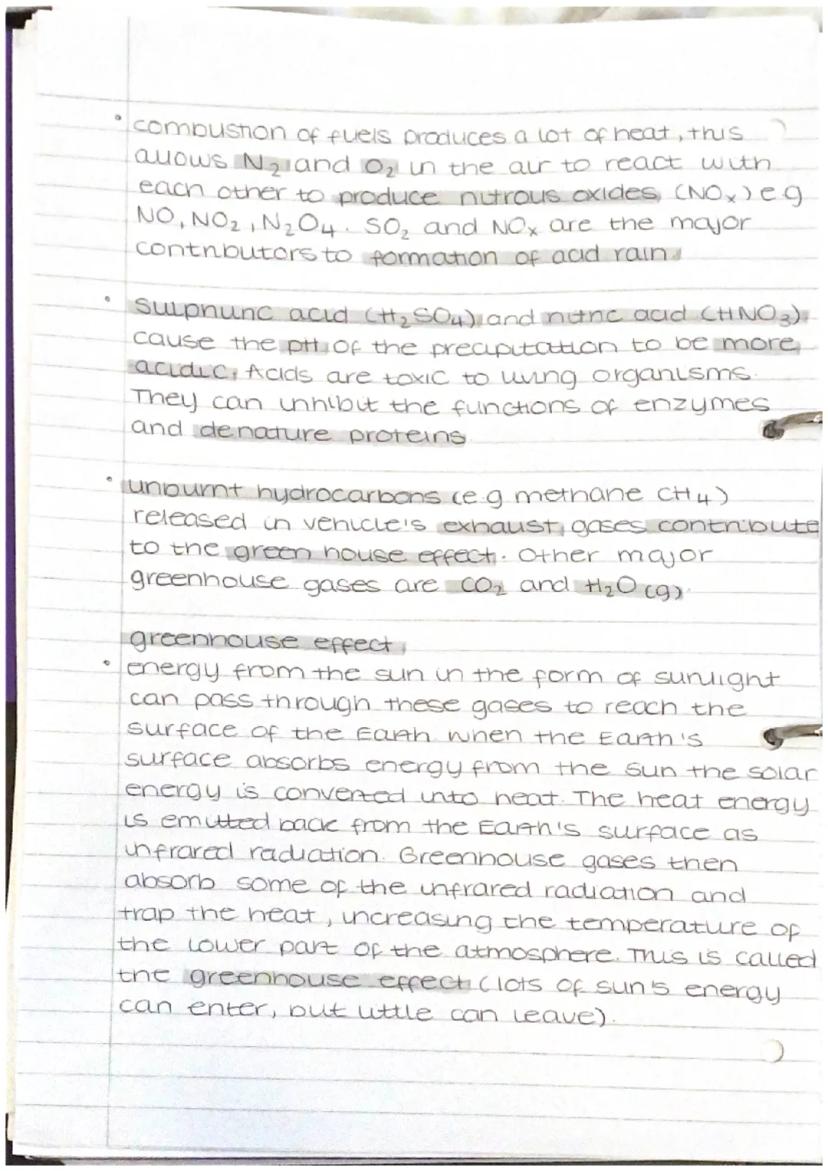 • combustion of fuels produces a lot of heat, this
allows N₂ and O₂ in the air to react with
each other to produce nitrous oxides (NOₓ) e.g
NO, NO₂, N₂O₄. SO₂ and NOₓ are the major
contributors to formation of acid rain.
• Sulphuric acid (H₂SO₄) and nitric acid (HNO₃)
cause the pH of the precipitation to be more
acidic. Acids are toxic to living organisms.
They can inhibit the functions of enzymes
and denature proteins
• unburnt hydrocarbons (e.g methane CH₄)
released in vehicle's exhaust gases contribute
to the green house effect. Other major
greenhouse gases are CO₂ and H₂O(g).
greenhouse effect
• energy from the sun in the form of sunlight
can pass through these gases to reach the
surface of the Earth when the Earth's
surface absorbs energy from the sun the solar
energy is converted into heat. The heat energy
is emitted back from the Earth's surface as
infrared radiation. Greenhouse gases then
absorb some of the infrared radiation and
trap the heat, increasing the temperature of
the lower part of the atmosphere. This is called
the greenhouse effect (lots of sun's energy
can enter, but little can leave).